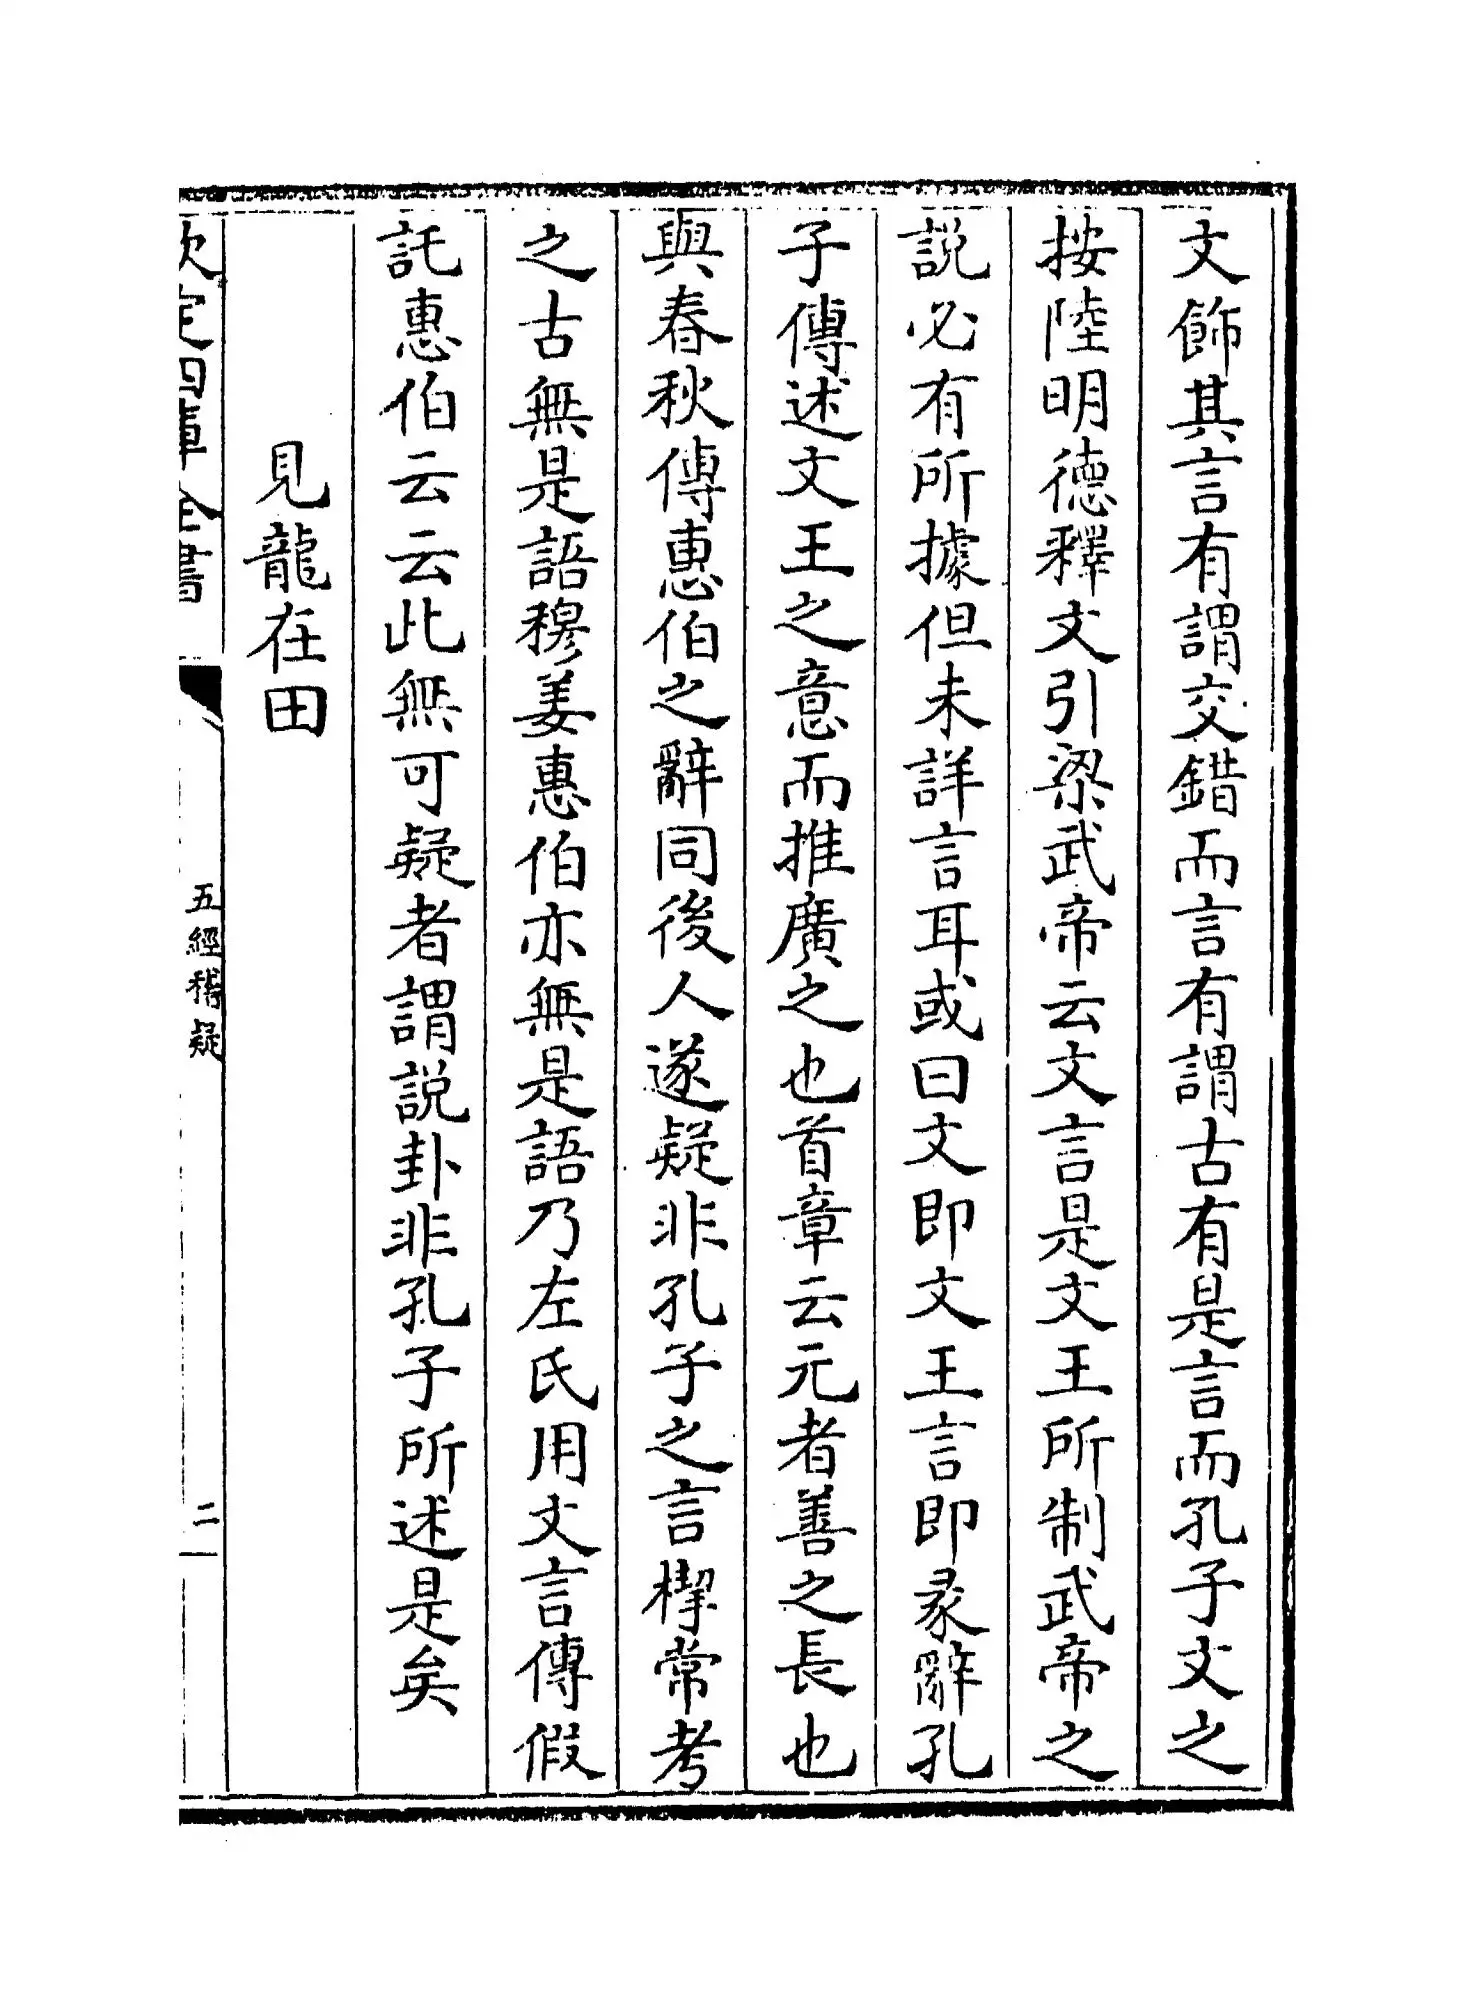 文飾其言有謂交錯而言有謂古有是言而孔子文之
按陸明德釋文引梁武帝云文言是文王所制武帝之
説必有所據但未詳言耳或曰文即文王言即彖辭孔
子傳述文王之意而推廣之也首章云元者善之長也
與春秋傳惠伯之辭同後人遂疑非孔子之言樨常考
之古無是語穆姜惠伯亦無是語乃左氏用文言傳假
託惠伯云云此無可疑者謂説卦非孔子所述是矣
見龍在田
欽定四庫全書
五經稽疑
二